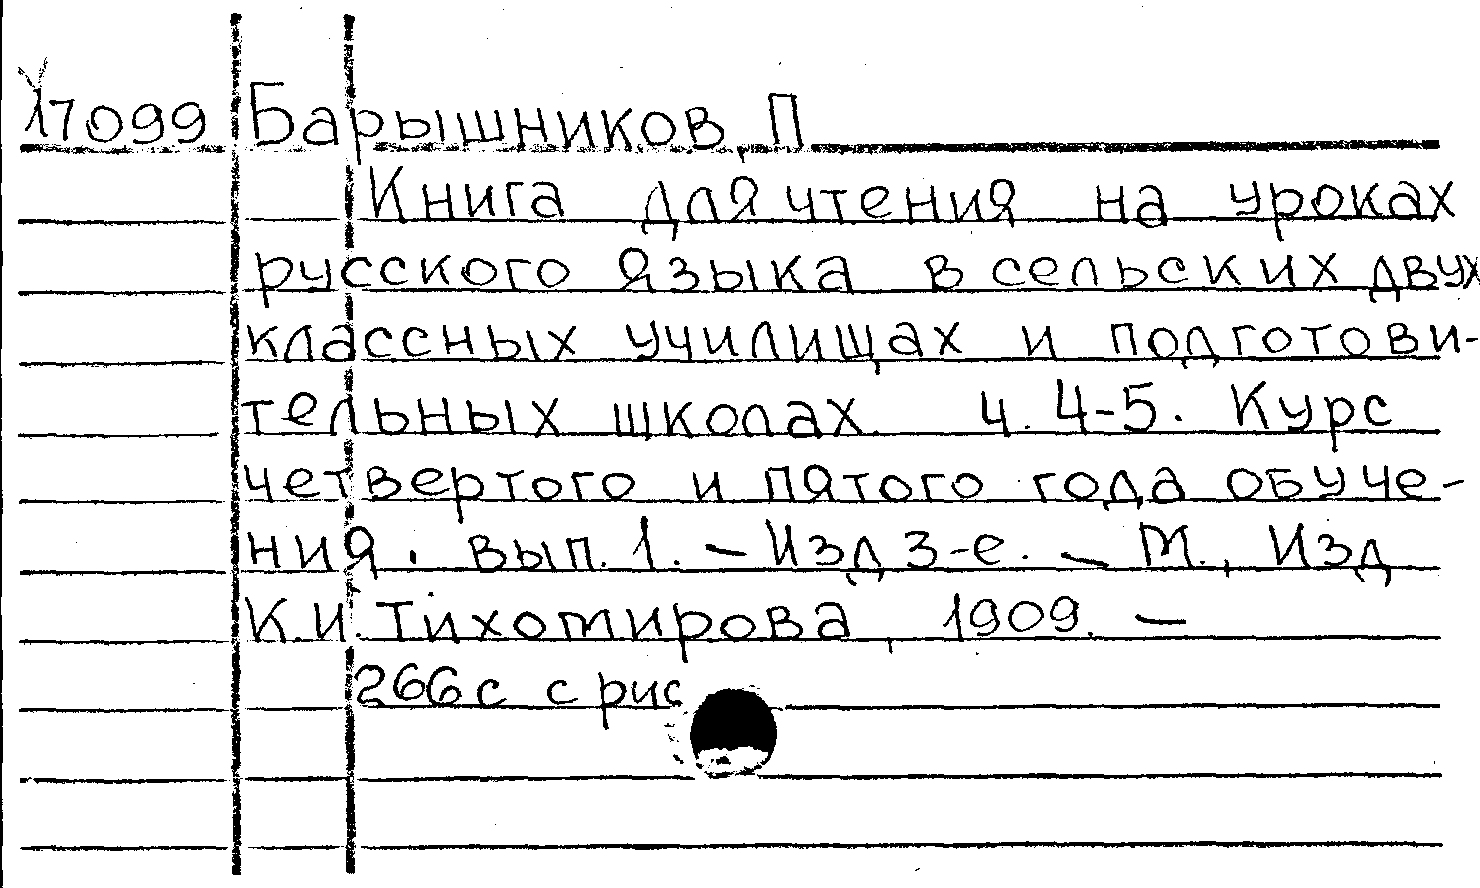 17099 Барышников, П
Книга для чтения на уроках
русского языка в сельских двух
классных училищах и подготови-
тельных школах. ч. 4-5. Курс
четвертого и пятого года обуче-
ния. вып. 1. — Изд 3-е. — М., Изд
К.И. Тихомирова, 1909. —
266с с рис